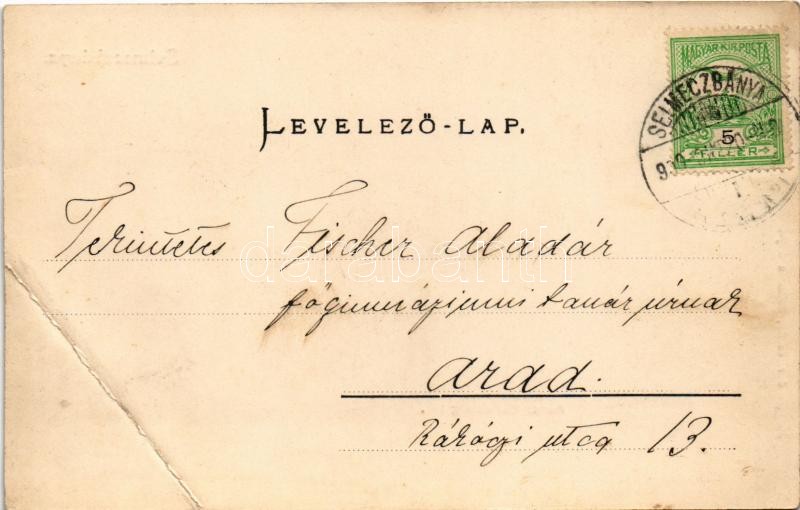 MAGYAR·KIR·POSTA
SELMECZBÁNYA
5
FILLÉR
LEVELEZŐ-LAP.
Tekintetes Fischer Aladár
főgimnáziumi tanár úrnak
Arad.
Rákóczi utca 13.
darabanth